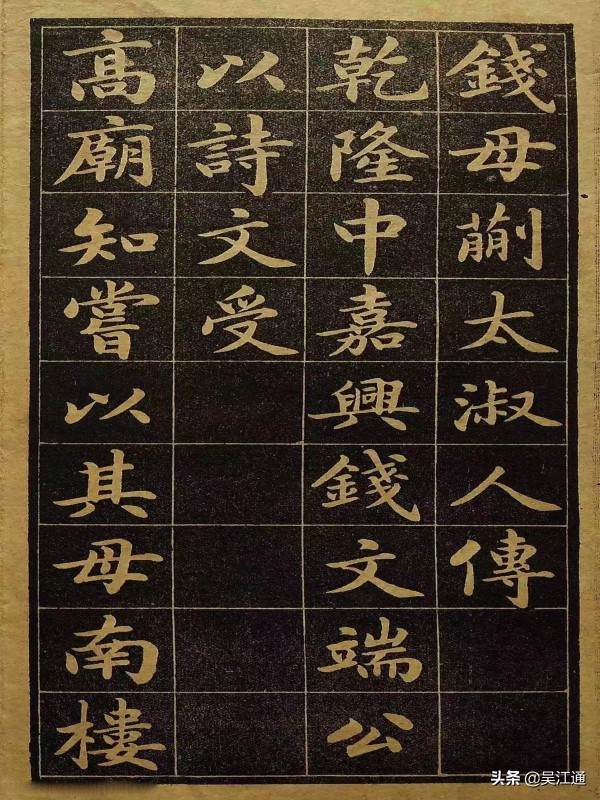 錢母蒯太淑人傳
乾隆中嘉興錢文端公
以詩文受
高廟知嘗以其母南樓
头条 @吴江通